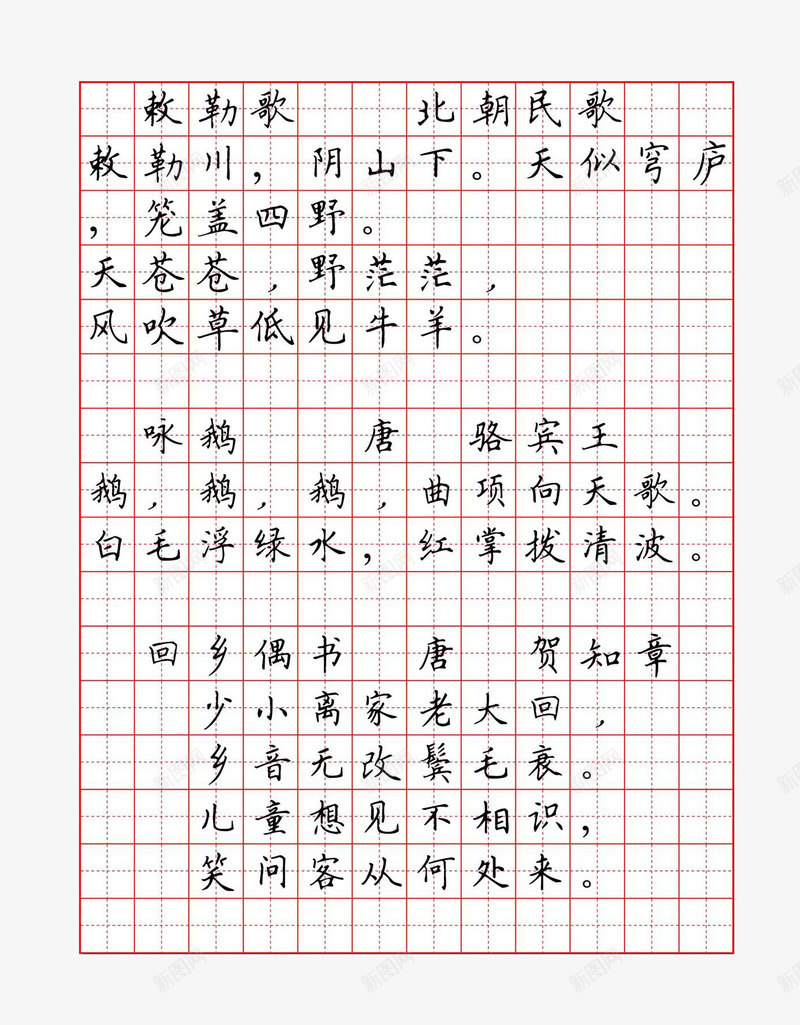 敕勒歌 北朝民歌
敕勒川，阴山下。天似穹庐
，笼盖四野。
天苍苍，野茫茫，
风吹草低见牛羊。
咏鹅 唐 骆宾王
鹅，鹅，鹅，曲项向天歌。
白毛浮绿水，红掌拨清波。
回乡偶书 唐 贺知章
少小离家老大回，
乡音无改鬓毛衰。
儿童想见不相识，
笑问客从何处来。